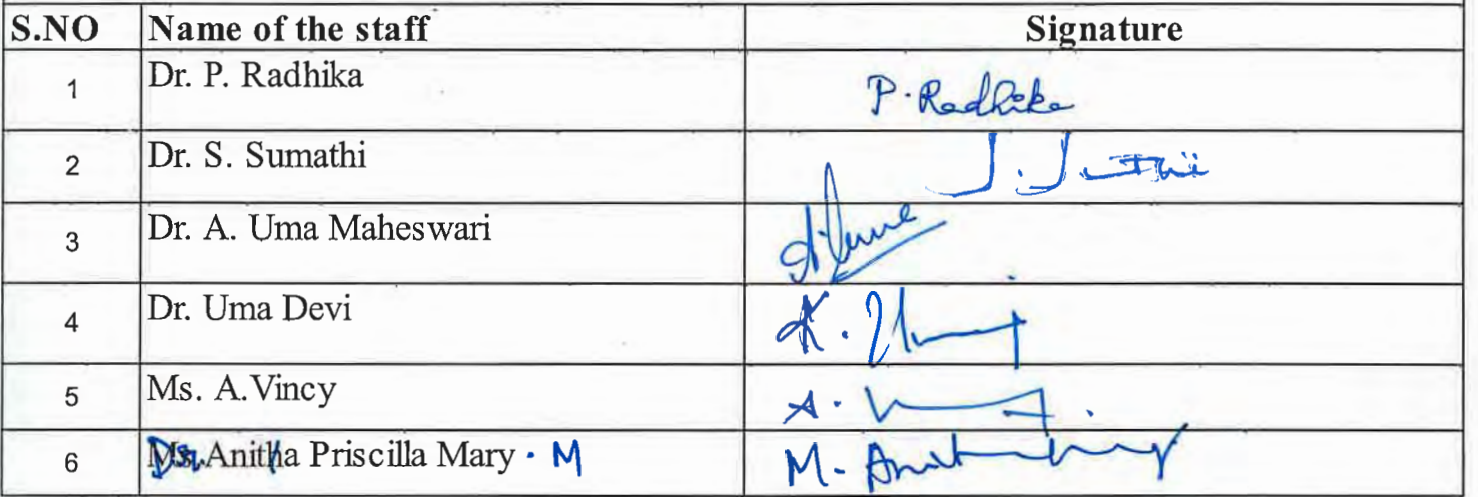 S.NO Name of the staff Signature
1 Dr. P. Radhika P. Radhika
2 Dr. S. Sumathi
3 Dr. A. Uma Maheswari A. Uma
4 Dr. Uma Devi K. Uma
5 Ms. A.Vincy A.
6 Dr. Anitha Priscilla Mary. M M. Anitha